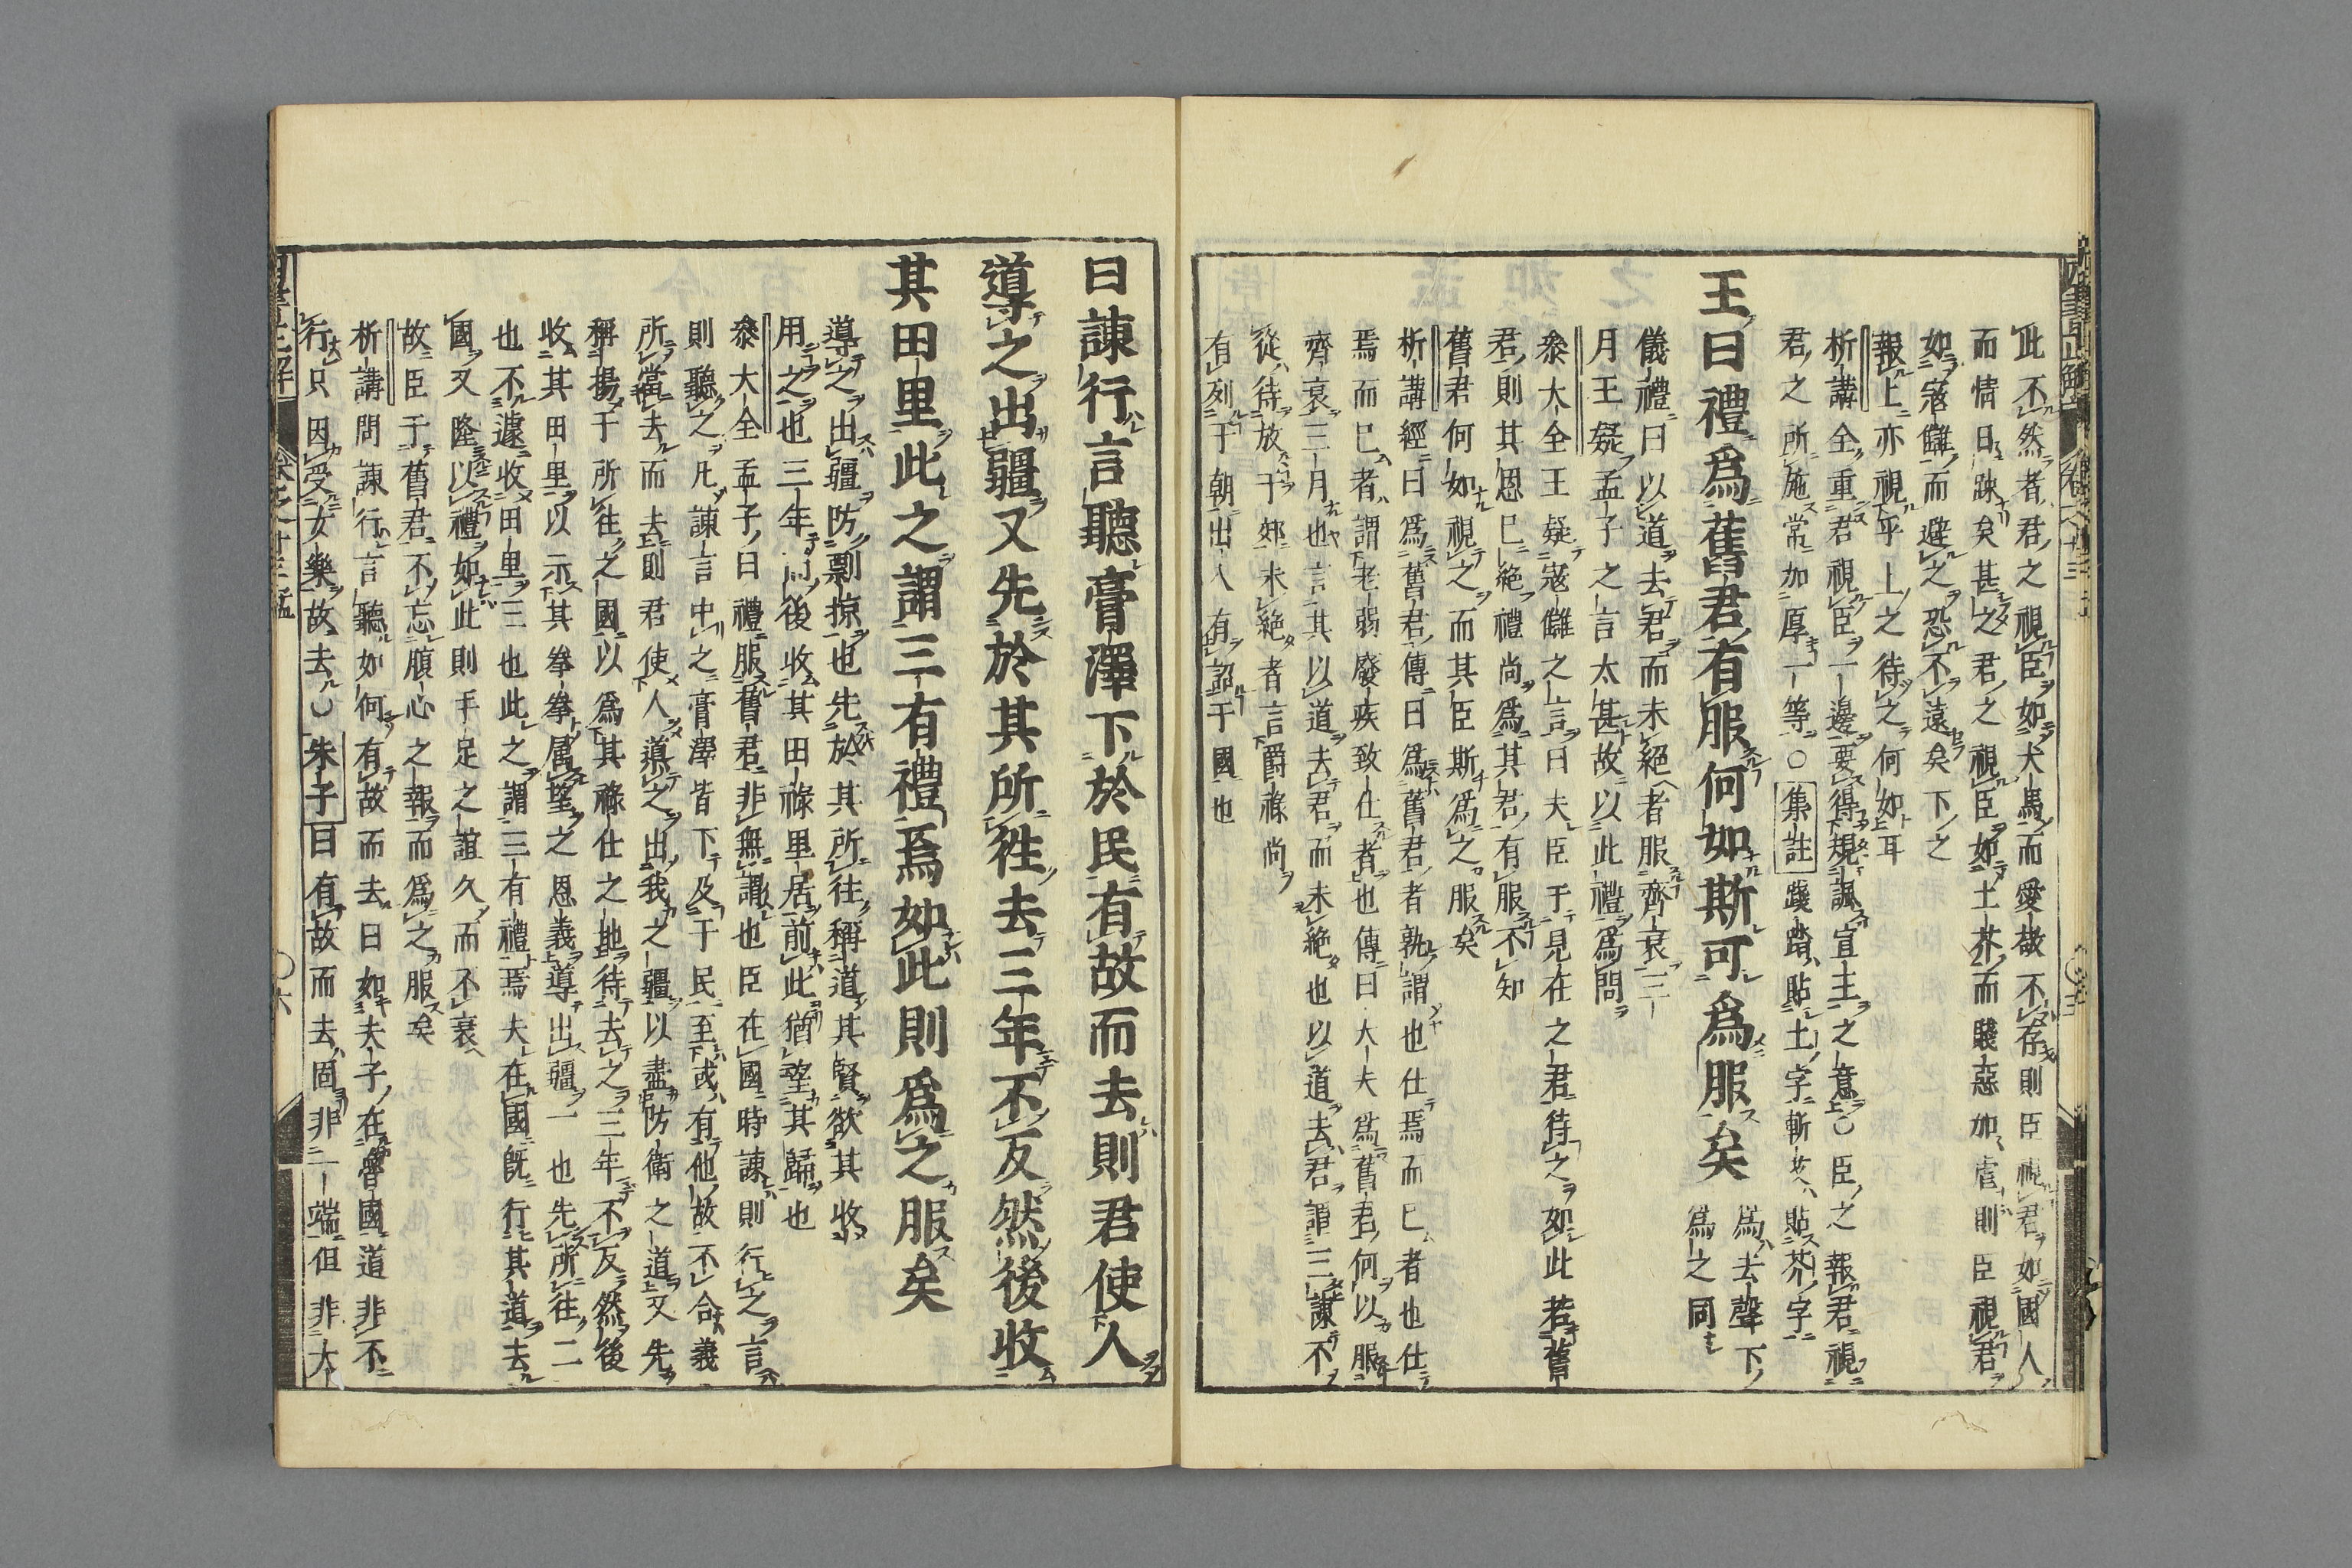 此不然者君之視臣如犬馬而愛敬不存則臣視君如國人
而情日疎矣甚之君之視臣如土芥而賤惡加虐則臣視君
如寇讎而避之恐不遠矣下之
報上亦視乎上之待之何如耳
析講全重君視臣一邊要得規諷宣王之意○臣之報君視
君之所施常加厚一等○集註踐踏貼土字斬艾貼芥字
王曰禮爲舊君有服何如斯可爲服矣
爲去聲下
爲之同
儀禮曰以道去君而未絕者服齊衰三
月王疑孟子之言太甚故以此禮爲問
叅大全王疑寇讎之言曰夫臣于見在之君待之如此若舊
君則其恩已絕禮尚爲其君有服不知
舊君何如視之而其臣斯爲之服矣
析講經曰爲舊君傳曰爲舊君者孰謂也仕焉而已者也仕
焉而已者謂老弱廢疾致仕者也傳曰大夫爲舊君何以服
齊衰三月也言其以道去君而未絕也以道去君謂三諫不
從待放于郊未絕者言爵祿尚
有列于朝出入有詔于國也
曰諫行言聽膏澤下於民有故而去則君使人
導之出疆又先於其所徃去三年不反然後收
其田里此之謂三有禮焉如此則爲之服矣
導之出疆防剽掠也先於其所往稱道其賢欲其收
用之也三年而後收其田祿里居前此猶望其歸也
叅大全孟子曰禮服舊君非無謂也臣在國時諫則行之言
則聽之凡諫言中之膏澤皆下及于民至或有他故不合義
所當去而去則君使人導之出我之疆以盡防衛之道又先
稱揚于所往之國以爲其祿仕之地待去之三年不反然後
收其田里以示其拳拳属望之恩義導出疆一也先所往二
也不遽收田里三也此之謂三有禮焉夫在國旣行其道去
國又隆以禮如此則手足之誼久而不衰
故臣于舊君不忘腹心之報而爲之服矣
析講問諫行言聽如何有故而去曰如夫子在魯國道非不
行只因受女樂故去○朱子曰有故而去固非一端但非大